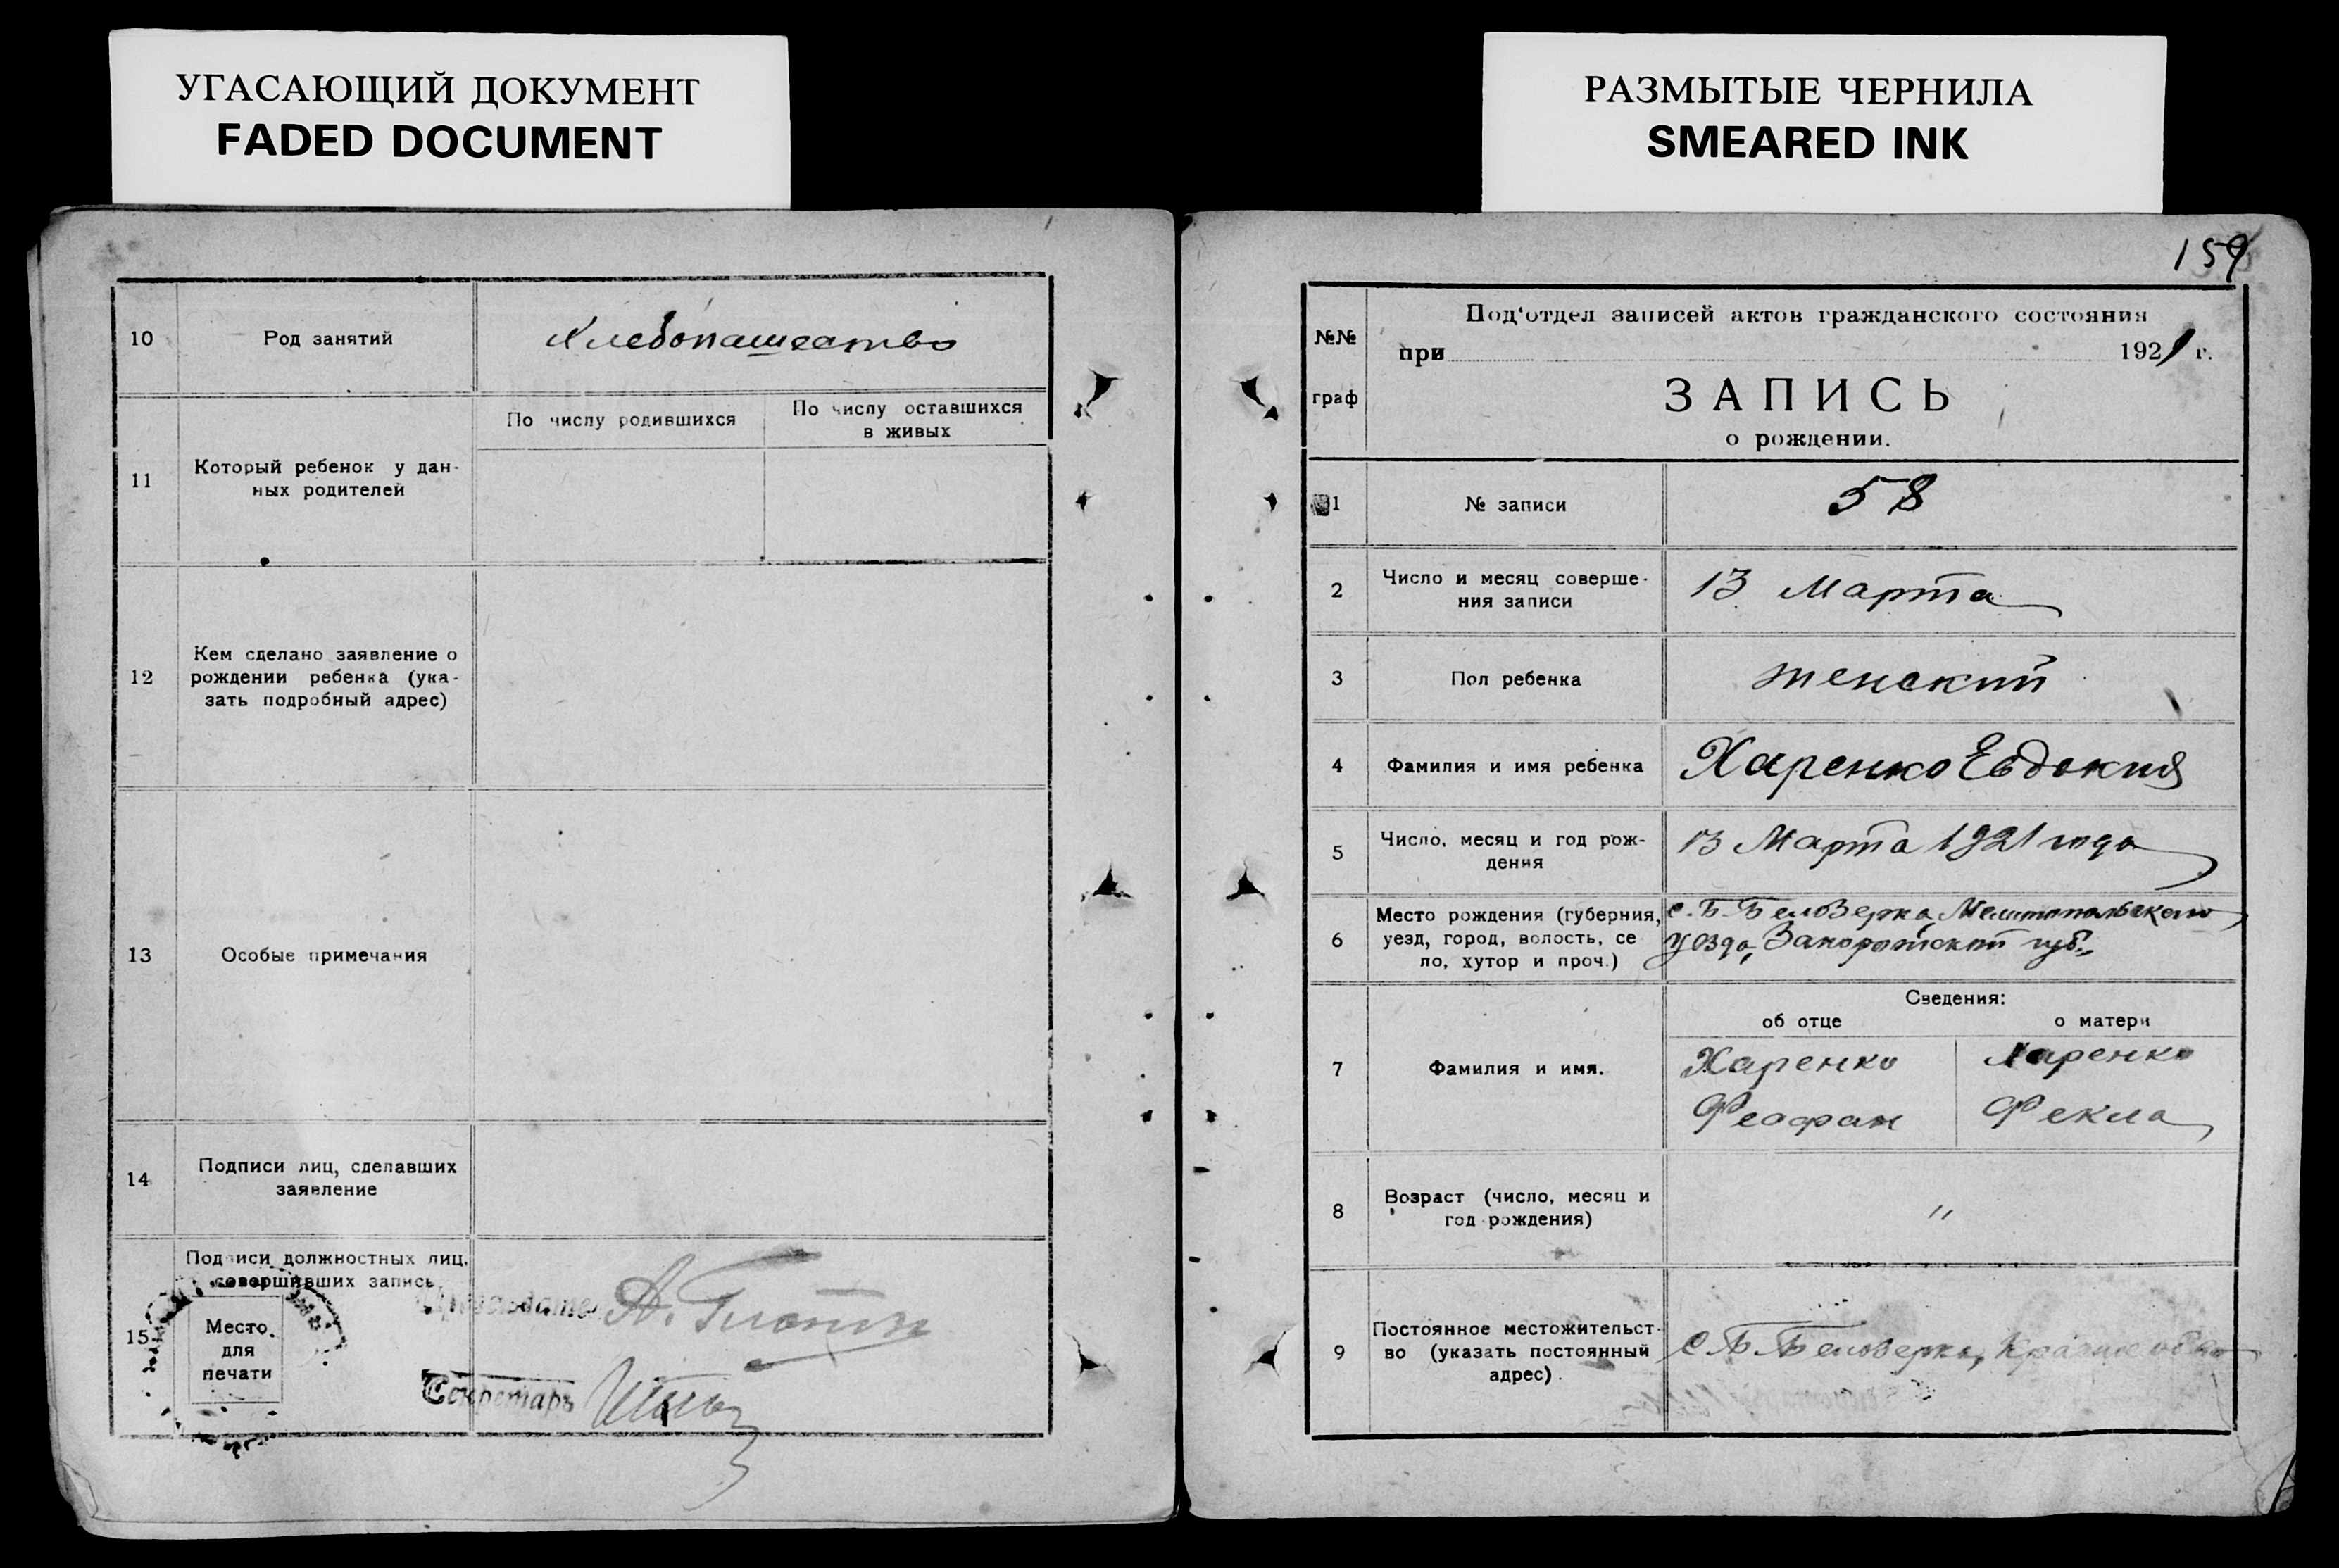 УГАСАЮЩИЙ ДОКУМЕНТ
FADED DOCUMENT
10
Род занятий
Хлебопашество
11
Который ребенок у дан-
ных родителей
По числу родившихся
По числу оставшихся
в живых
12
Кем сделано заявление о
рождении ребенка (ука-
зать подробный адрес)
13
Особые примечания
14
Подписи лиц, сделавших
заявление
15
Подписи должностных лиц,
совершивших запись
Место
для
печати
А.
Секретарь
РАЗМЫТЫЕ ЧЕРНИЛА
SMEARED INK
159
№№
граф
Под'отдел записей актов гражданского состояния
при 1921 г.
ЗАПИСЬ
о рождении.
1
№ записи
58
2
Число и месяц соверше-
ния записи
13 Марта
3
Пол ребенка
женский
4
Фамилия и имя ребенка
Харенко Евдокия
5
Число, месяц и год рож-
дения
13 Марта 1921 года
6
Место рождения (губерния,
уезд, город, волость, се
ло, хутор и проч.)
с. Б-Белозерка, Мелитопольского
уезда, Запорожской губ.
Сведения:
об отце
о матери
7
Фамилия и имя.
Харенко
Феофан
Харенко
Фекла
8
Возраст (число, месяц и
год рождения)
"
9
Постоянное местожительст-
во (указать постоянный
адрес)
с Б-Белозерка,